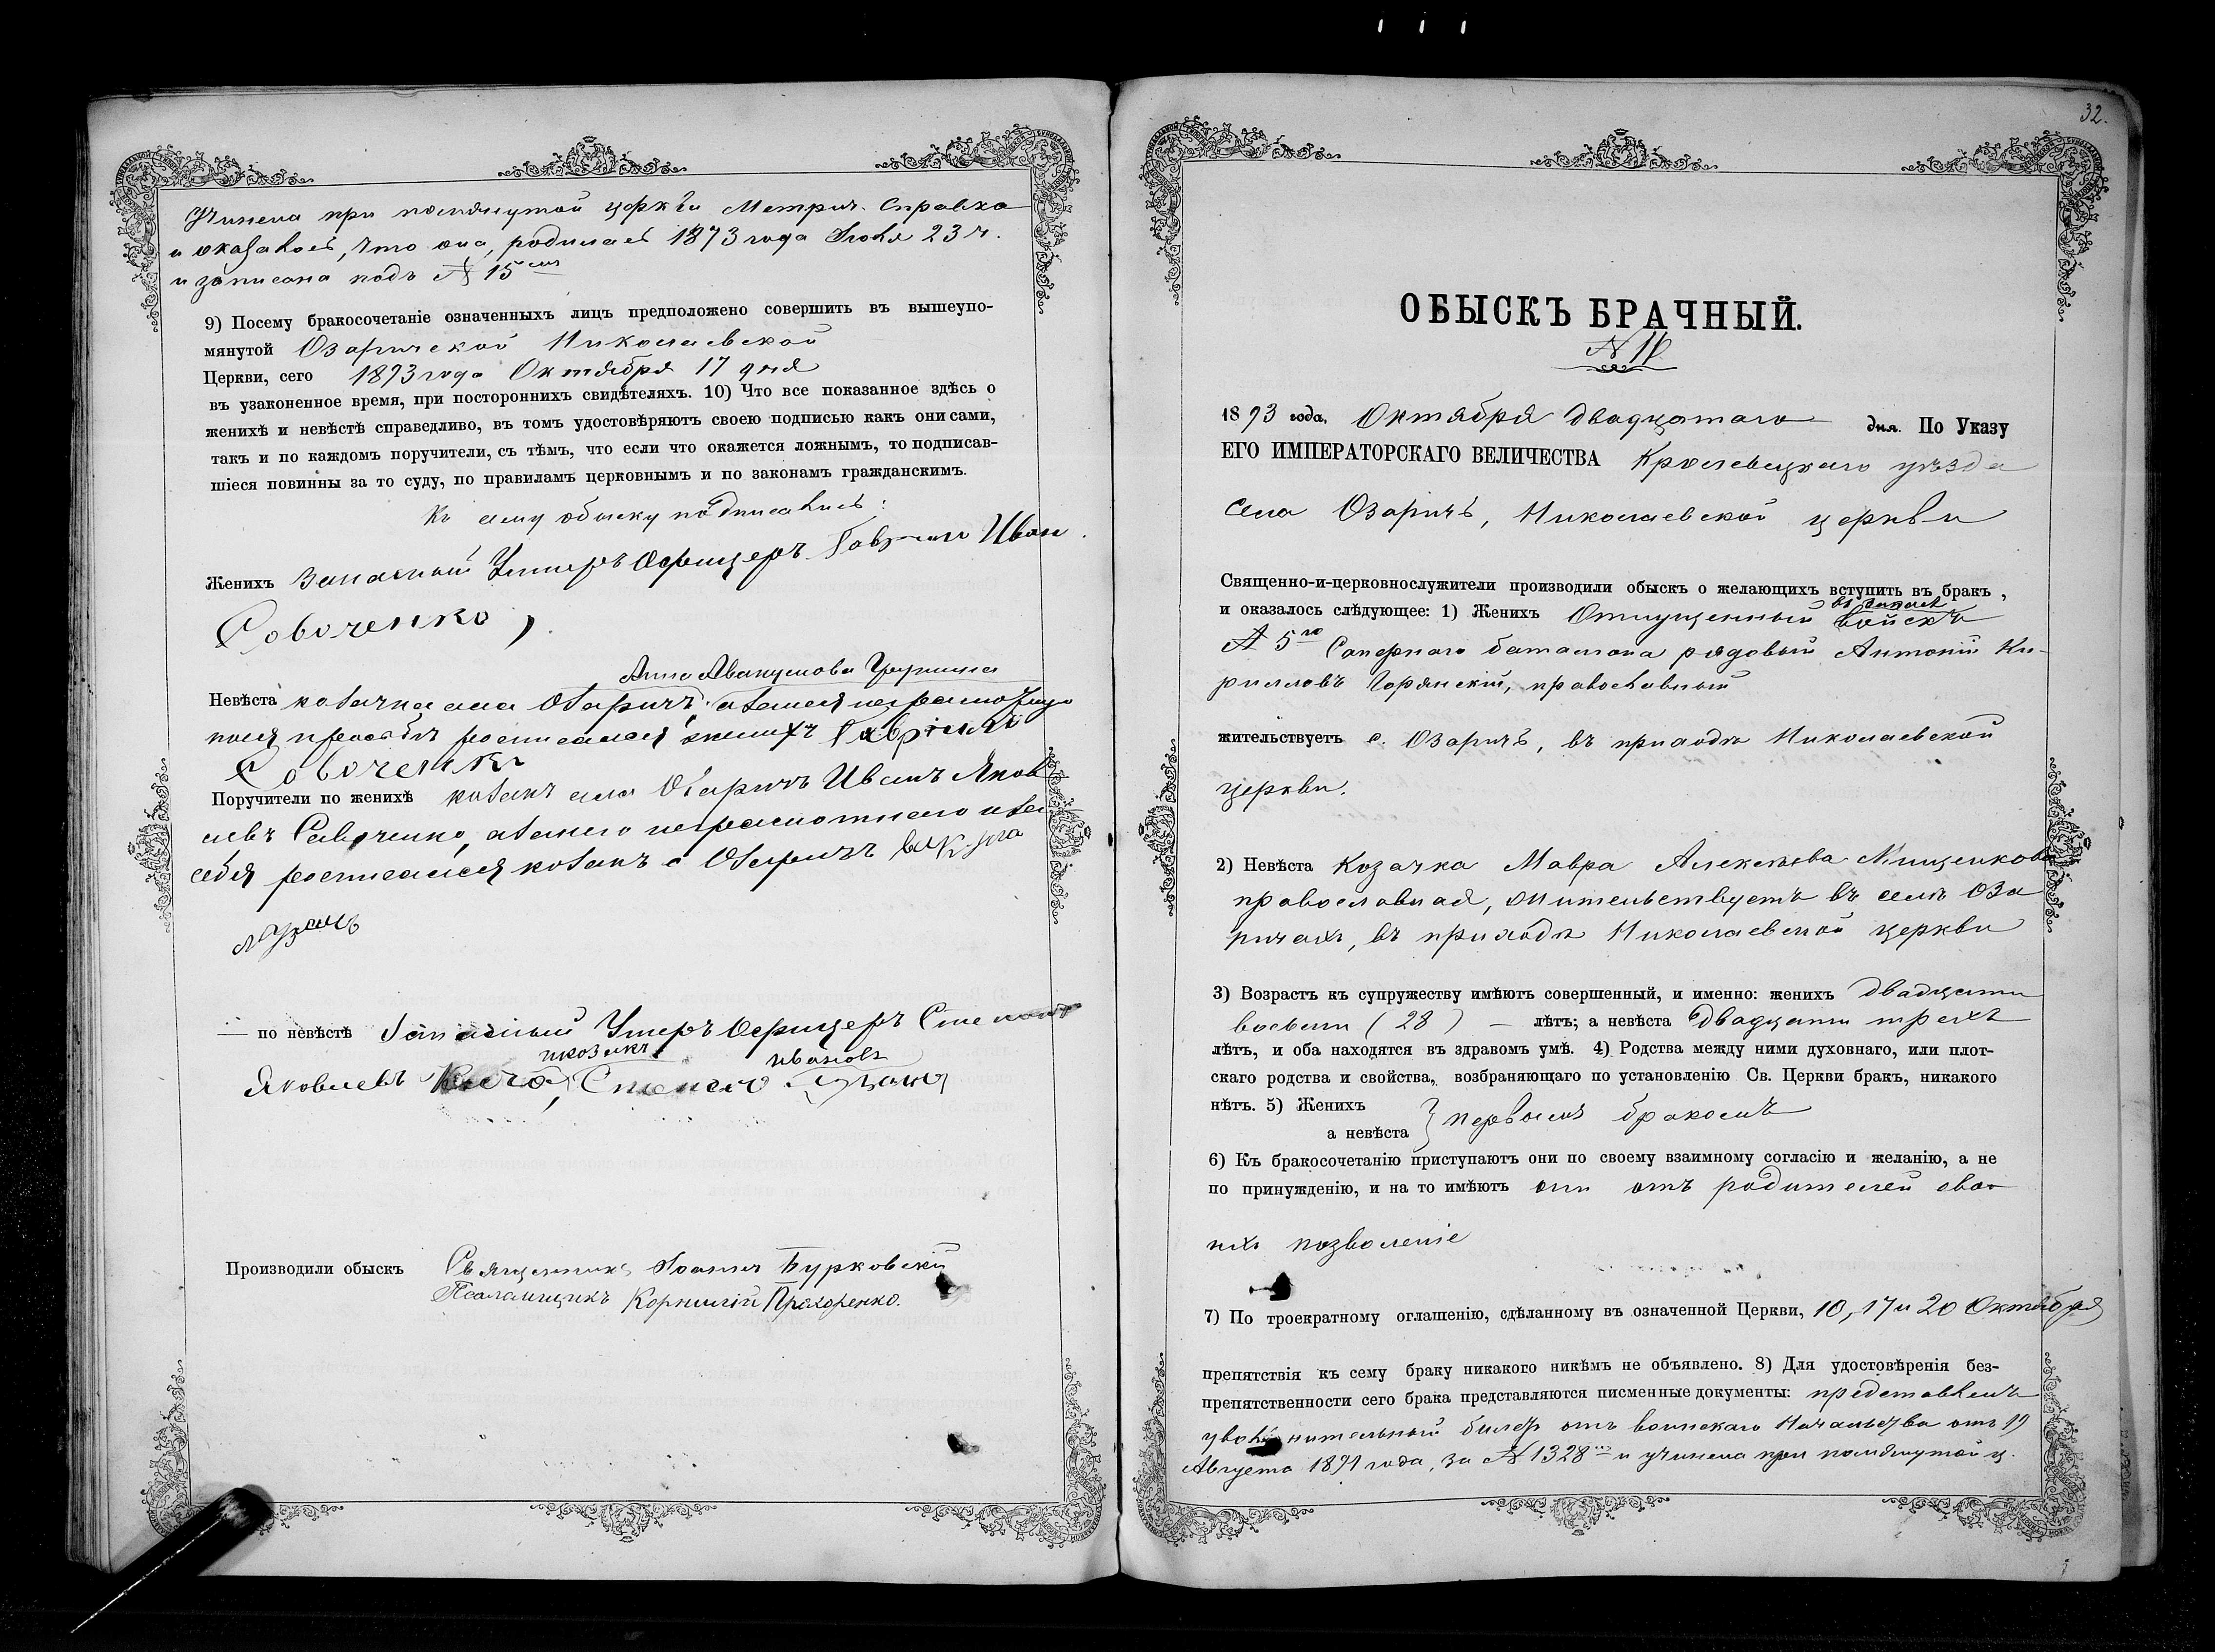 Учинена при помянутой церкви Метрич. Справка
и оказалось, что она, родилась 1873 года Іюля 23 ч.
и записана подъ № 15
9) Посему бракосочетаніе означенныхъ лицъ предположено совершить въ вышеупо-
мянутой Озаричской Николаевской
Церкви, сего 1893 года Октября 17 дня
въ узаконенное время, при постороннихъ свидѣтеляхъ. 10) Что все показанное здѣсь о
женихѣ и невѣстѣ справедливо, въ томъ удостовѣряютъ своею подписью какъ они сами,
такъ и по каждомъ поручители, съ тѣмъ, что если что окажется ложнымъ, то подписав-
шіеся повинны за то суду, по правиламъ церковнымъ и по законамъ гражданскимъ.
Къ сему обыску подписались:
Женихъ Запасный Унтеръ Офицеръ Гавріилъ Иван
Савченко,
Анна Авакумова
Невѣста козачка села Озаричъ, а за нея неграмотную
по ея просьбѣ росписался женихъ Гавріилъ
Савченко
Поручители по женихѣ козакъ села Озаричъ Иванъ Яков
левъ Савченко, а за него неграмотнаго и за
себя росписался козакъ с Озаричъ
— по невѣстѣ Запасный Унтеръ Офицеръ Степанъ
икозакъ Ивановъ
Яковлевъ Степанъ
Производили обыскъ Священникъ Іоаннъ Бурковскій
Псаломщикъ Корнилій Прохоренко.
32.
ОБЫСКЪ БРАЧНЫЙ.
№
1893 года, Октября двадцатаго дня. По Указу
ЕГО ИМПЕРАТОРСКАГО ВЕЛИЧЕСТВА Кролевецкаго уѣзда
села Озаричъ, Николаевской церкви
Священно-и-церковнослужители производили обыскъ о желающихъ вступить въ бракъ,
въ запасъ
и оказалось слѣдующее: 1) Женихъ Отпущенный войскъ
5го Сапернаго баталіона рядовый Антоній Ки-
рилловъ Горянскій, православный
жительствуетъ с. Озаричъ, въ приходѣ Николаевской
церкви.
2) Невѣста Козачка Мавра Алексѣева
православная, жительствуетъ въ селѣ Оза
ричахъ, въ приходѣ Николаевской церкви
3) Возрастъ къ супружеству имѣютъ совершенный, и именно: женихъ двадцати
восьми (28) — лѣтъ; а невѣста двадцати трехъ
лѣтъ, и оба находятся въ здравомъ умѣ. 4) Родства между ними духовнаго, или плот-
скаго родства и свойства, возбраняющаго по установленію Св. Церкви бракъ, никакого
нѣтъ. 5) Женихъ
а невѣста } первымъ бракомъ
6) Къ бракосочетанію приступаютъ они по своему взаимному согласію и желанію, а не
по принужденію, и на то имѣютъ они отъ родителей сво-
ихъ позволеніе
7) По троекратному оглашенію, сдѣланному въ означенной Церкви, 10, 17 и 20 Октября
препятствія къ сему браку никакого никѣмъ не объявлено. 8) Для удостовѣренія без-
препятственности сего брака представляются писменные документы: представленъ
увольнительный билетъ отъ воинскаго Начальства отъ 19
Августа 1891 года, за № 1328 и учинена при помянутой ц.